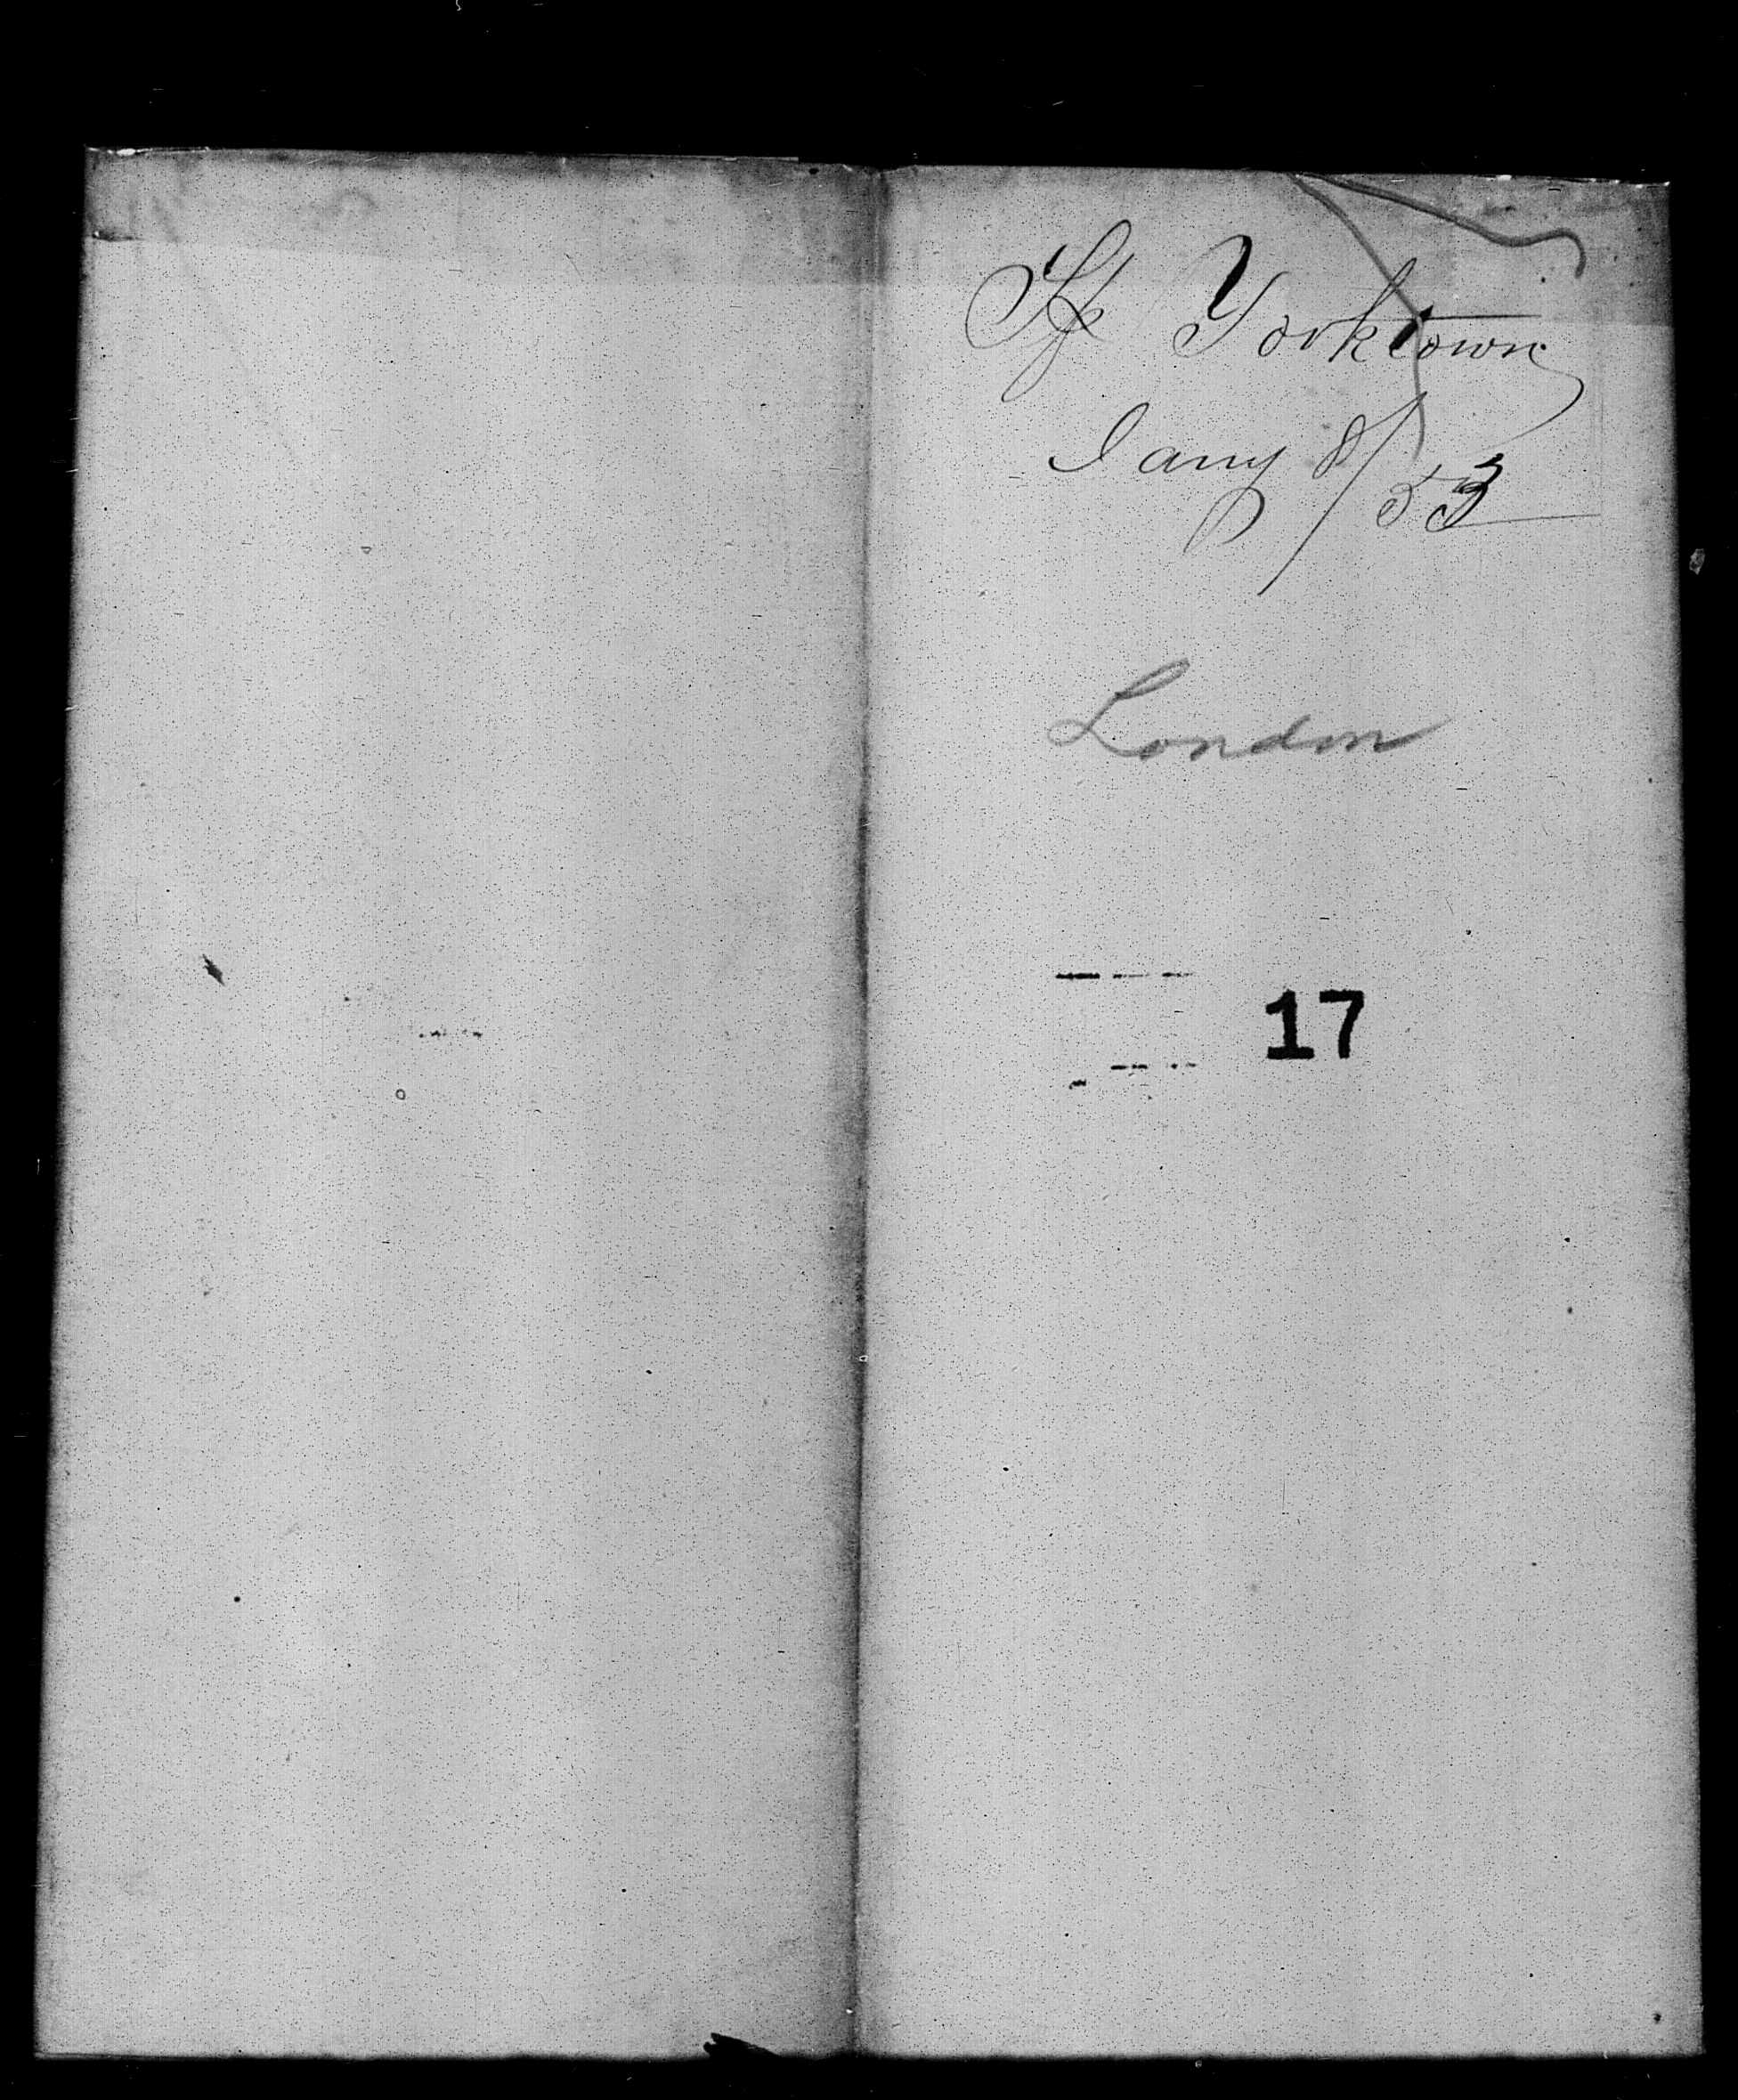 Sp Yorktown
Jany 8/53
London
17